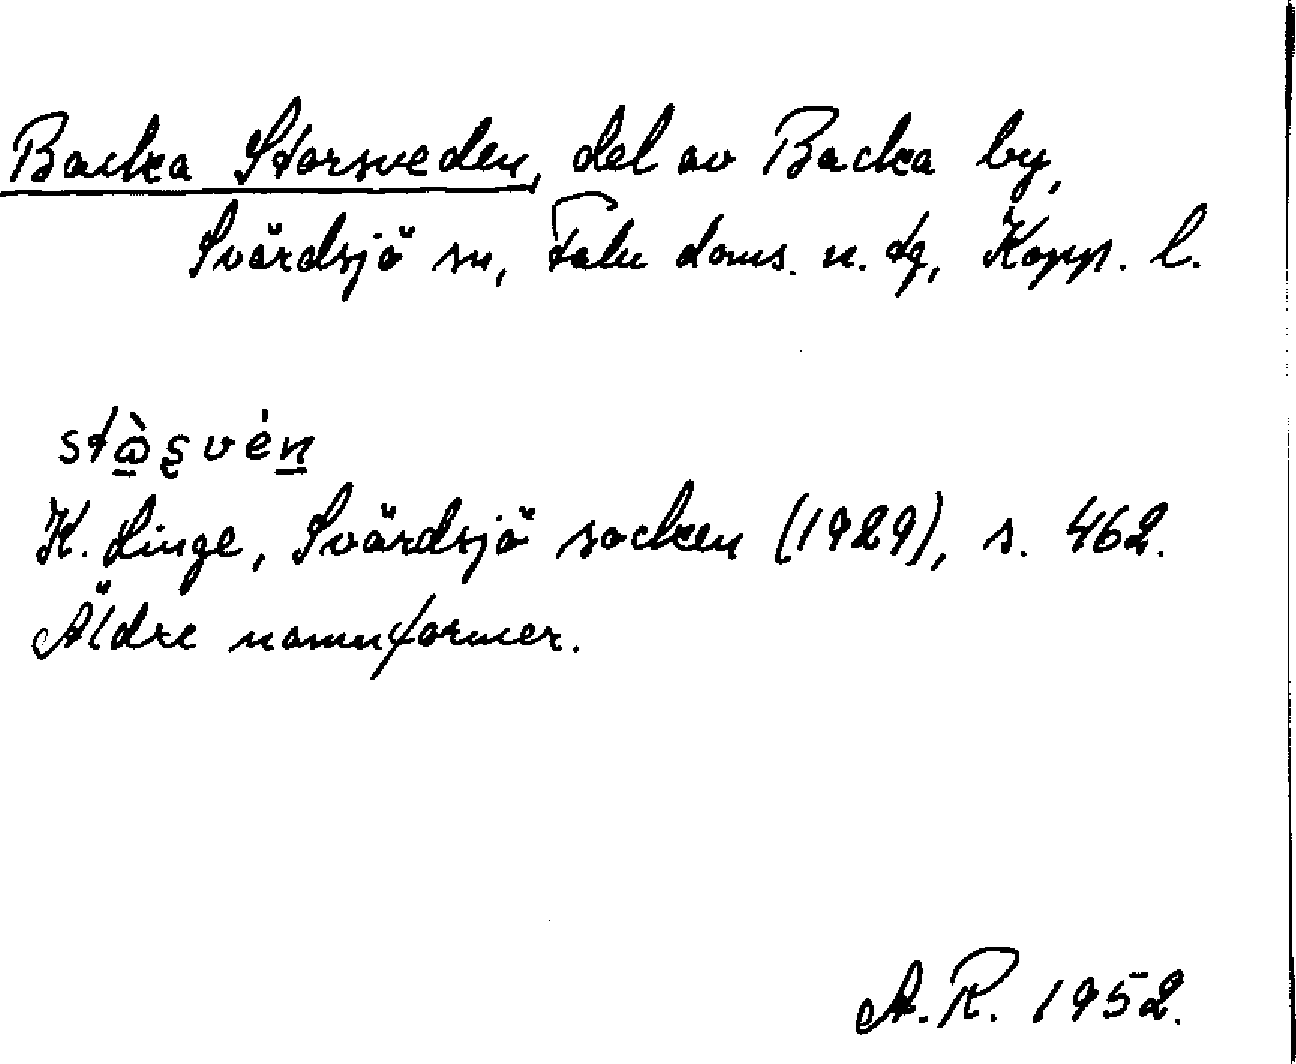 Backa Storsveden, del av Backa by,
Svärdsjö sn, Falu doms. n. tg, Kopp. l.
stå̲̀ȿvén̲
K. Linge, Svärdsjö socken (1929), s. 462.
Äldre namnformer.
A.R. 1952.